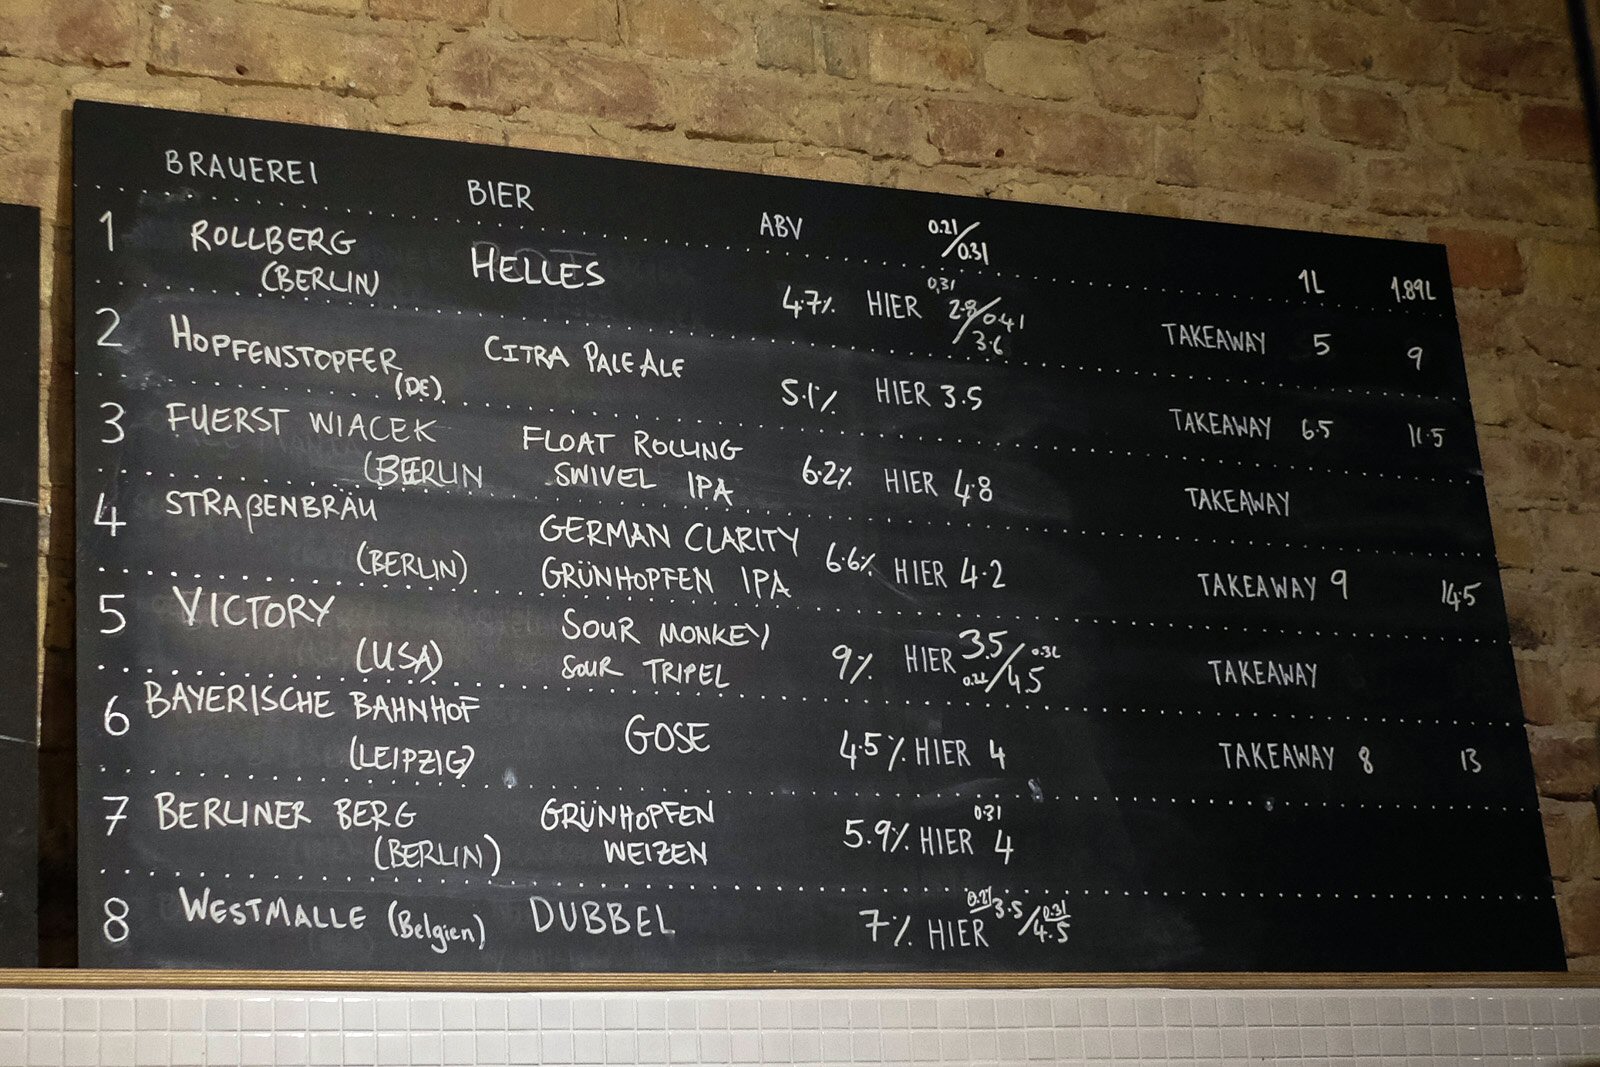 BRAUEREI BIER ABV 0.2l/0.3l 1L 1.89L
1 ROLLBERG (BERLIN) HELLES 4.7% HIER 0,3l 2.8/0.4l 3.6 TAKEAWAY 5 9
2 HOPFENSTOPFER (DE) CITRA PALE ALE 5.1% HIER 3.5 TAKEAWAY 6.5 11.5
3 FUERST WIACEK (BERLIN FLOAT ROLLING SWIVEL IPA 6.2% HIER 4.8 TAKEAWAY
4 STRAßENBRÄU (BERLIN) GERMAN CLARITY GRÜNHOPFEN IPA 6.6% HIER 4.2 TAKEAWAY 9 14.5
5 VICTORY (USA) SOUR MONKEY SOUR TRIPEL 9% HIER 3.5 0.2L/0.3L 4.5 TAKEAWAY
6 BAYERISCHE BAHNHOF (LEIPZIG) GOSE 4.5% HIER 4 TAKEAWAY 8 13
7 BERLINER BERG (BERLIN) GRÜNHOPFEN WEIZEN 5.9% HIER 0.3l 4
8 WESTMALLE (Belgien) DUBBEL 7% HIER 0.2l 3.5/0.3l 4.5